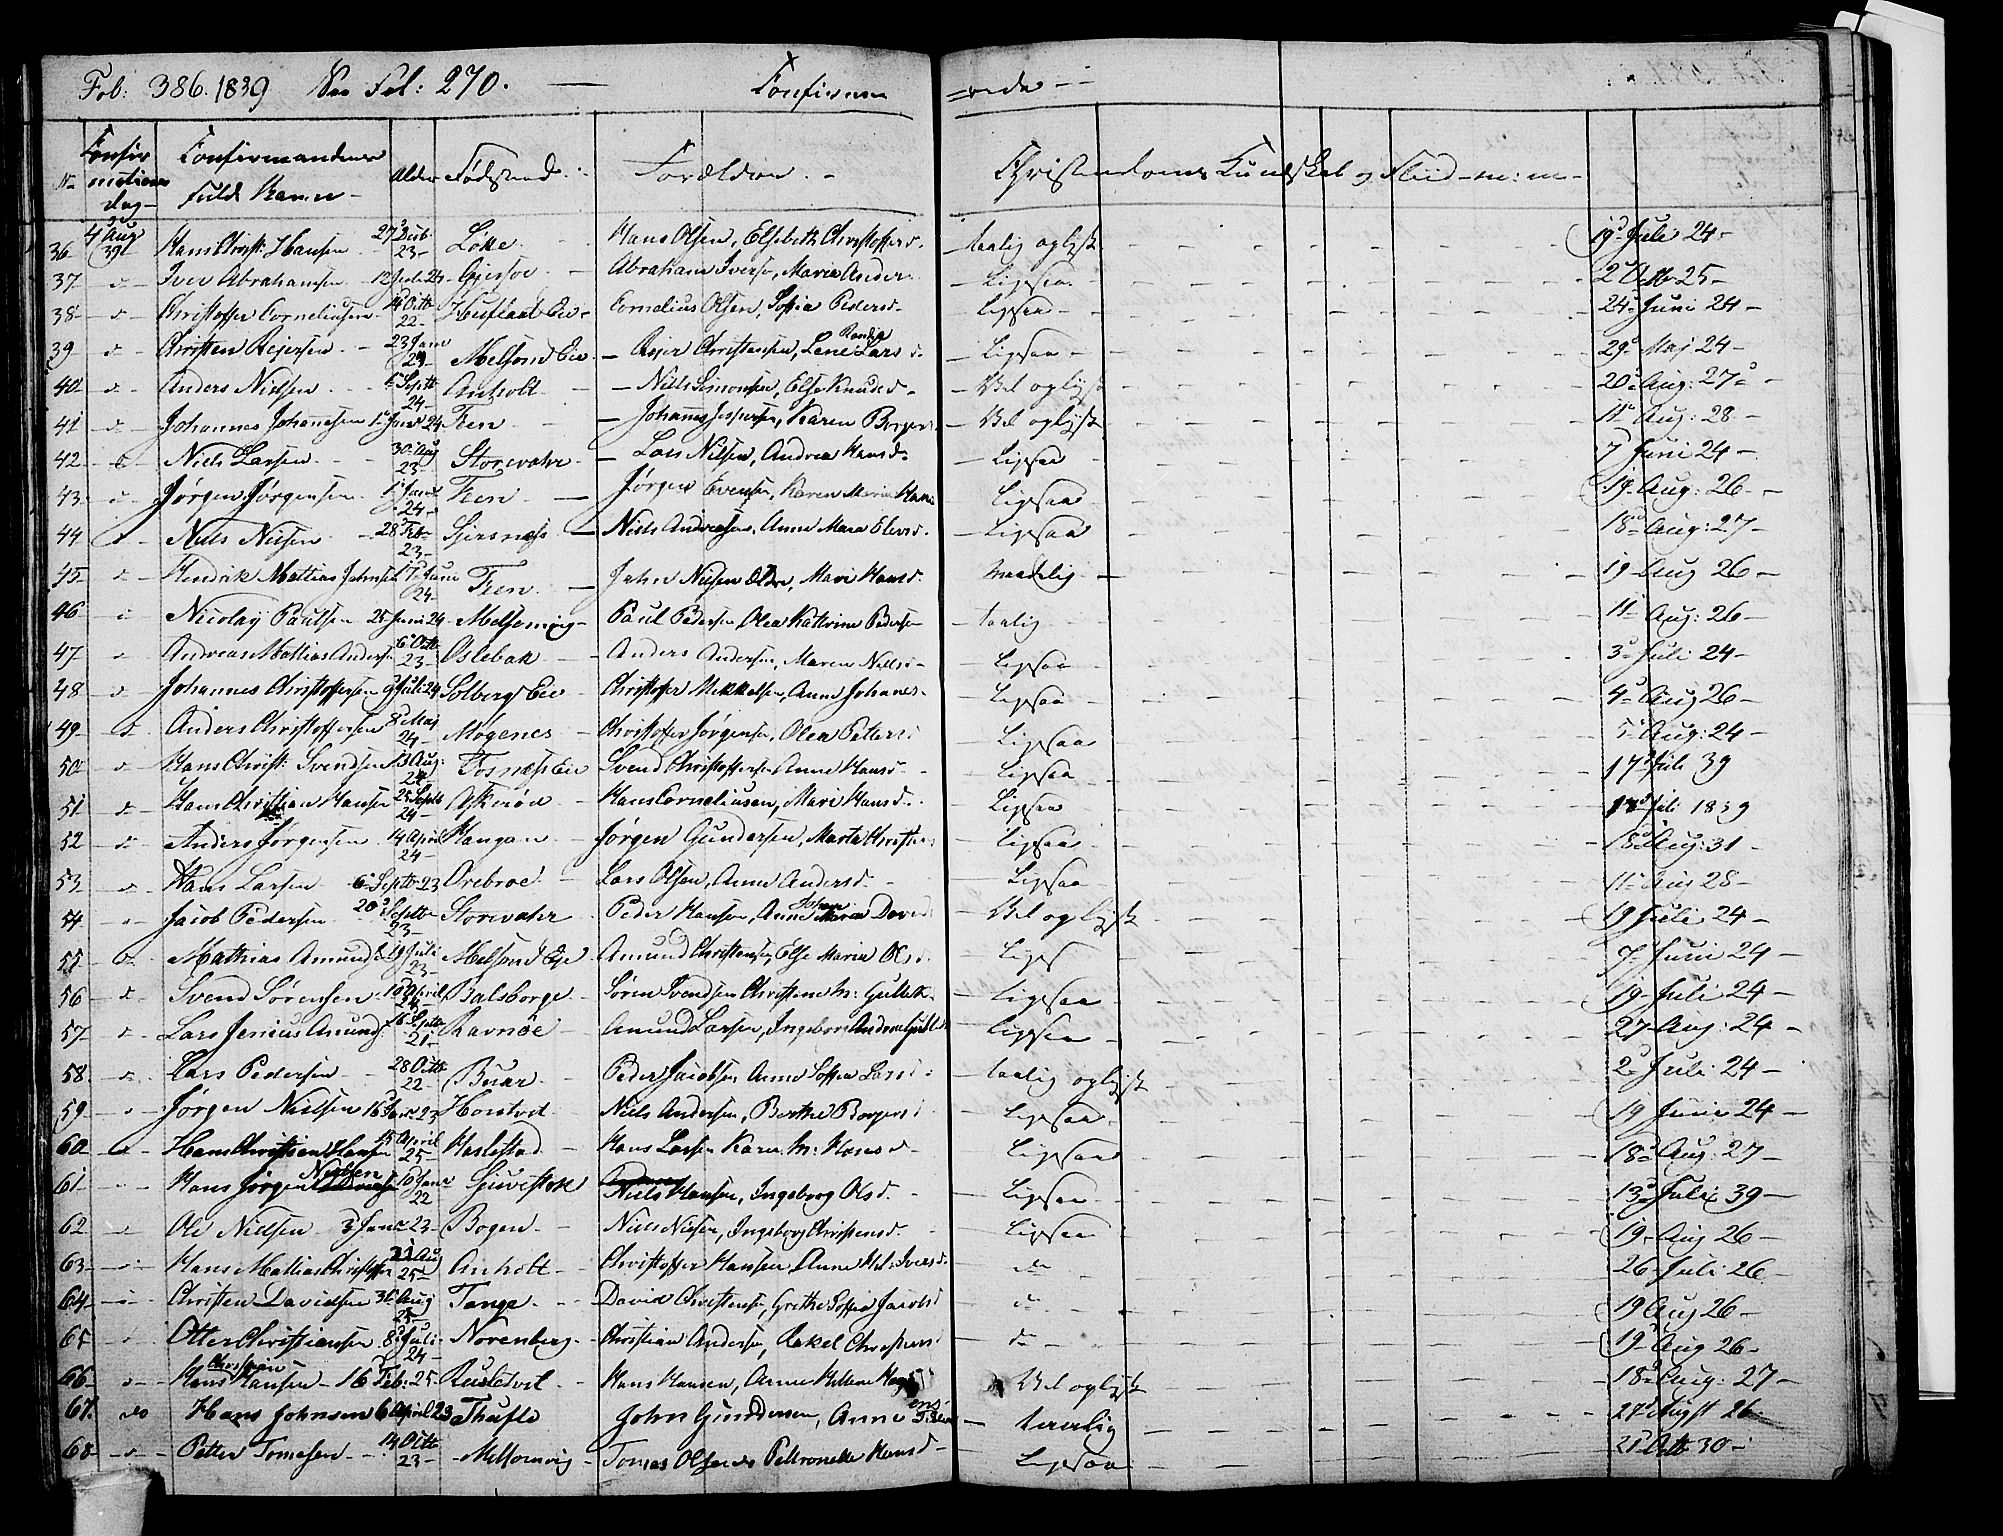 Fol: 386. 1839 Fol: 270. — Confirmerede —
No Confirmations dag — Confirmandens fulde Navn — Alder Fødested Forældre — Christendoms Kundskab og Fliid m: m —
36 4 Aug 39 Hans Christ: Hansen 27 Decb 23 — Løkke Hans Olsen, Elsebeth Christoffersd. — taalig oplyst 19 Juli 24 —
37 — Iver Abrahamsen 12 Juli 24 Gjersøe — Abraham Iversen, Maria Anders — Ligesaa 2 Octb 25 —
38 — Christoffer Corneliussen 14 Octb 22 Eie — Cornelius Olsen, Sofia Pedersd — Ligesaa 24 Juni 24 —
39 Christen Reiersen — 23 Janu 24 Melsom Eie — Reier Christensen, Lene Randia Larsd. — Ligesaa 29 Maj 24 —
40 Anders Nielsen Septb 24 — Anholt — Niels Simonsen, Else Knudsd — — Vel oplyst 20 Aug: 27 —
41 Johannes Johannesen 1 Janu 24 Feen — — Johannes Jespersen, Karen Borgers — Vel oplyst 11 Aug: 28 —
42 Niels Larsen — 30 Aug 23 — Storevahr — — Lars Nilsen, Andrea Hansd. — Ligesaa 7 Juni 24 —
43 Jørgen Jørgensen 1 Janu 24 — Feen — Jørgen Evensen, Karen Maria Hans Ligesaa 19 Aug: 26 —
44 Niels Nilsen 28 Feb 23 — Gjersnæss — Niels Andreasen, Anne Mara Elevsd. Ligesaa 18 Aug: 27 —
45 — Hendrik Mathias Johnsen 17 Janu 24 — Feen — — John Nielsen Ældre, Mari Hansd. Maadelig — 19 Aug 26 —
46 Nicolay Paulsen 25 Juni 24 Melsomvig — Paul Pedersen, Olea Kathrine Peders — taalig 11 Aug: 26 —
47 Andreas Mathias Anders 6 Octb 23 — Oslebak — — Anders Andersen, Maren Nielsd — — Ligesaa 3 Juli 24 —
48 Johannes Christoffersen 9 Juli 24 Solberg Eie — Christoffer Mikkelsen, Anne Johannes — — Ligesaa 4 Aug 26 —
49 Anders Christoffersen 8 Maj 24 — Møgenes — Christoffer Jørgensen, Olea Petters Ligesaa 5 Aug: 24 —
50 Hans Christ: Svendsen 13 Aug: 24 Fosnæss Eie Svend Christoffersen, Anne Hansd — Ligesaa 17 Juli 39
51 Hans Christian Hansen 25 Septb 24 — — Hans Corneliusen, Mari Hansd — Ligesaa 17 Juli 1839
52 — Anders Jørgensen 14 April 24 — Haugan — Jørgen Gundersen, Marta Christens — Ligesaa 18 Aug: 31 —
53 — Hans Larsen 6 Septb 23 Orebroe — Lars Olsen, Anne Andersd. — Ligesaa 11 Aug 28 —
54 Jacob Pedersen 20 Septb 23 — Storevahr — Peder Hansen, Anne Johan Maria David — Vel oplyst 19 Juli 24 —
55 — Mathias Amunds 19 Juli 23 — Melsom Eje. Amund Christensen, Else Maria Ols — Liges 7 Juni 24 —
56 Svend Sørensen 18 April 24 Balsborge — Søren Svendsen Christiane M: Gulbr. — Ligesaa 19 Juli 24 —
57 Lars Jenius Amunds 16 Septb 21 — Ravnøe — Amund Larsen, Ingeborg Andrea — Ligesaa 27 Aug: 24 —
58 — Lars Pedersen 28 Octb 22 — Buar — Peder Jacobsen Anne Soffia Larsd — taalig oplyst 2 Juli 24 —
59 — Jørgen Nielsen 16 Janu 23 Horntvet — Niels Andersen, Berthe Borgers Ligesaa 19 Juni 24 —
60 — Hans Christian Hansen 25 April 25 — Haslestad — Hans Larsen Karen M: Hansd — Ligesaa 18 Aug: 27 —
61 Hans Jørgen Nielsen 10 Janu 22 — Gjuvestok Niels Hansen, Ingeborg Olsd. — Ligesaa 13 Juli 39 —
62 — Ole Nielsen 3 Janu 23 — Bogen — Niels Nielsen, Ingeborg Christensd. — Ligesaa 19 Aug 26 —
63 — Hans Mathias Christoffer 21 Aug 25 — Anholt — Christoffer Hansen Anne Hel: Iversd. — do 26 Juli 26 —
64 — Christen Davidsen 31 Aug 25 — Tange — David Christensen, Grethe Soffia Jacobsd do 19 Aug 26 —
65 Otter Christiansen 8 Juli 24 — Norenberg — Christian Andersen, Rakel Christens do 19 Aug 26 —
66 — Hans Christian Hansen — 16 Feb: 25 — Rustetvet — Hans Hansen, Anne Hellene Vel oplyst 18 Aug: 27 —
67. do Hans Johnsen 6 April 23 Thufte John Gundersen, Anne — taalig 27 Augst 26
68 — Petter Tomesen — 14 Octb 23 — Melsomvig — Tomas Olsen Petronelle Hansd — Ligesaa 21 Octb 30 —